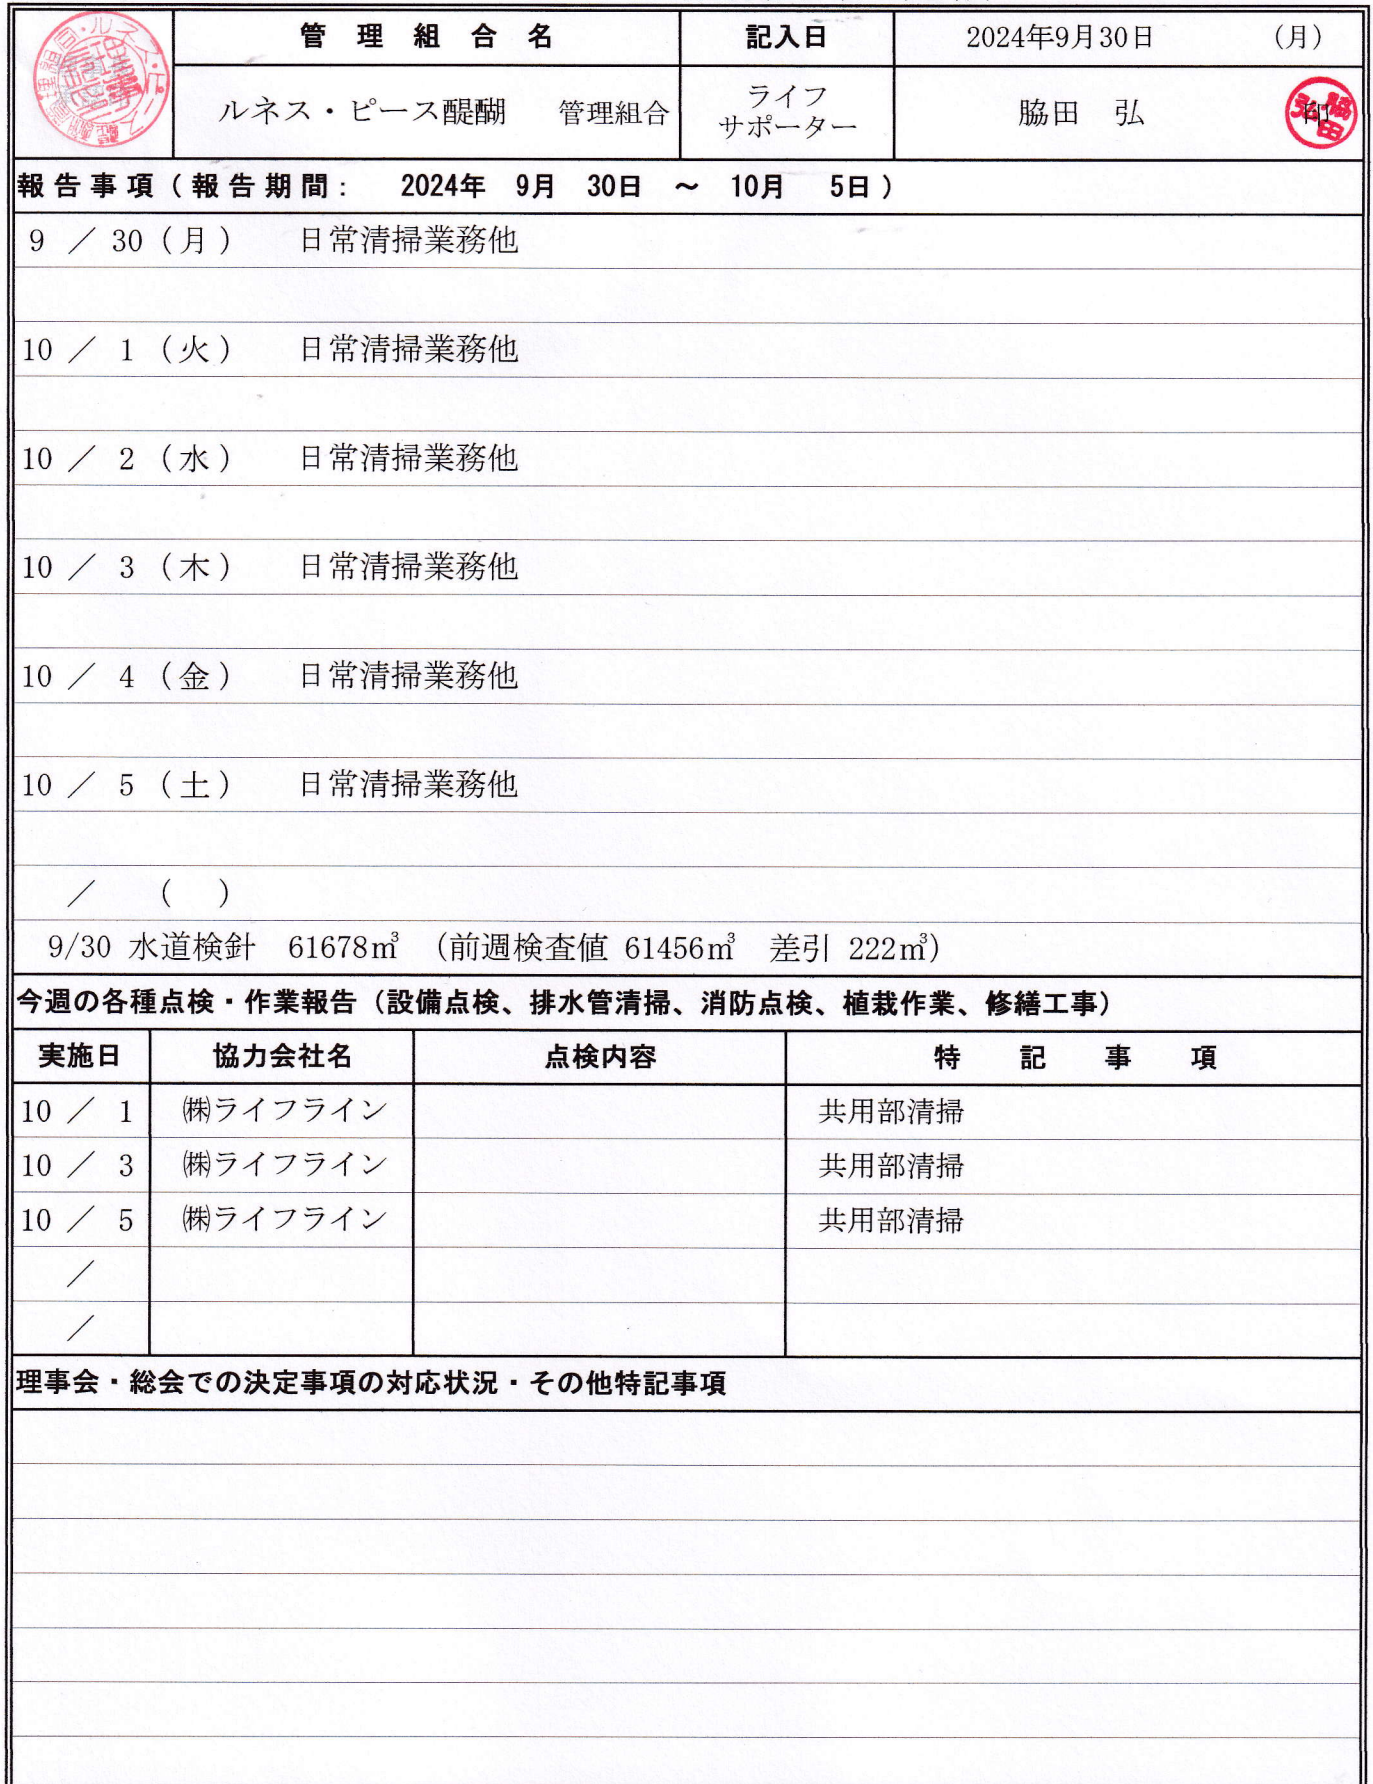 管理組合名 記入日 2024年9月30日 (月)
ルネス・ピース醍醐 管理組合 ライフ
サポーター 脇田 弘 印
報告事項(報告期間: 2024年 9月 30日 ~ 10月 5日)
9 / 30 (月) 日常清掃業務他
10 / 1 (火) 日常清掃業務他
10 / 2 (水) 日常清掃業務他
10 / 3 (木) 日常清掃業務他
10 / 4 (金) 日常清掃業務他
10 / 5 (土) 日常清掃業務他
/ ( )
9/30 水道検針 61678㎥ (前週検査値 61456㎥ 差引 222㎥)
今週の各種点検・作業報告(設備点検、排水管清掃、消防点検、植栽作業、修繕工事)
実施日 協力会社名 点検内容 特記事項
10 / 1 ㈱ライフライン 共用部清掃
10 / 3 ㈱ライフライン 共用部清掃
10 / 5 ㈱ライフライン 共用部清掃
/
/
理事会・総会での決定事項の対応状況・その他特記事項